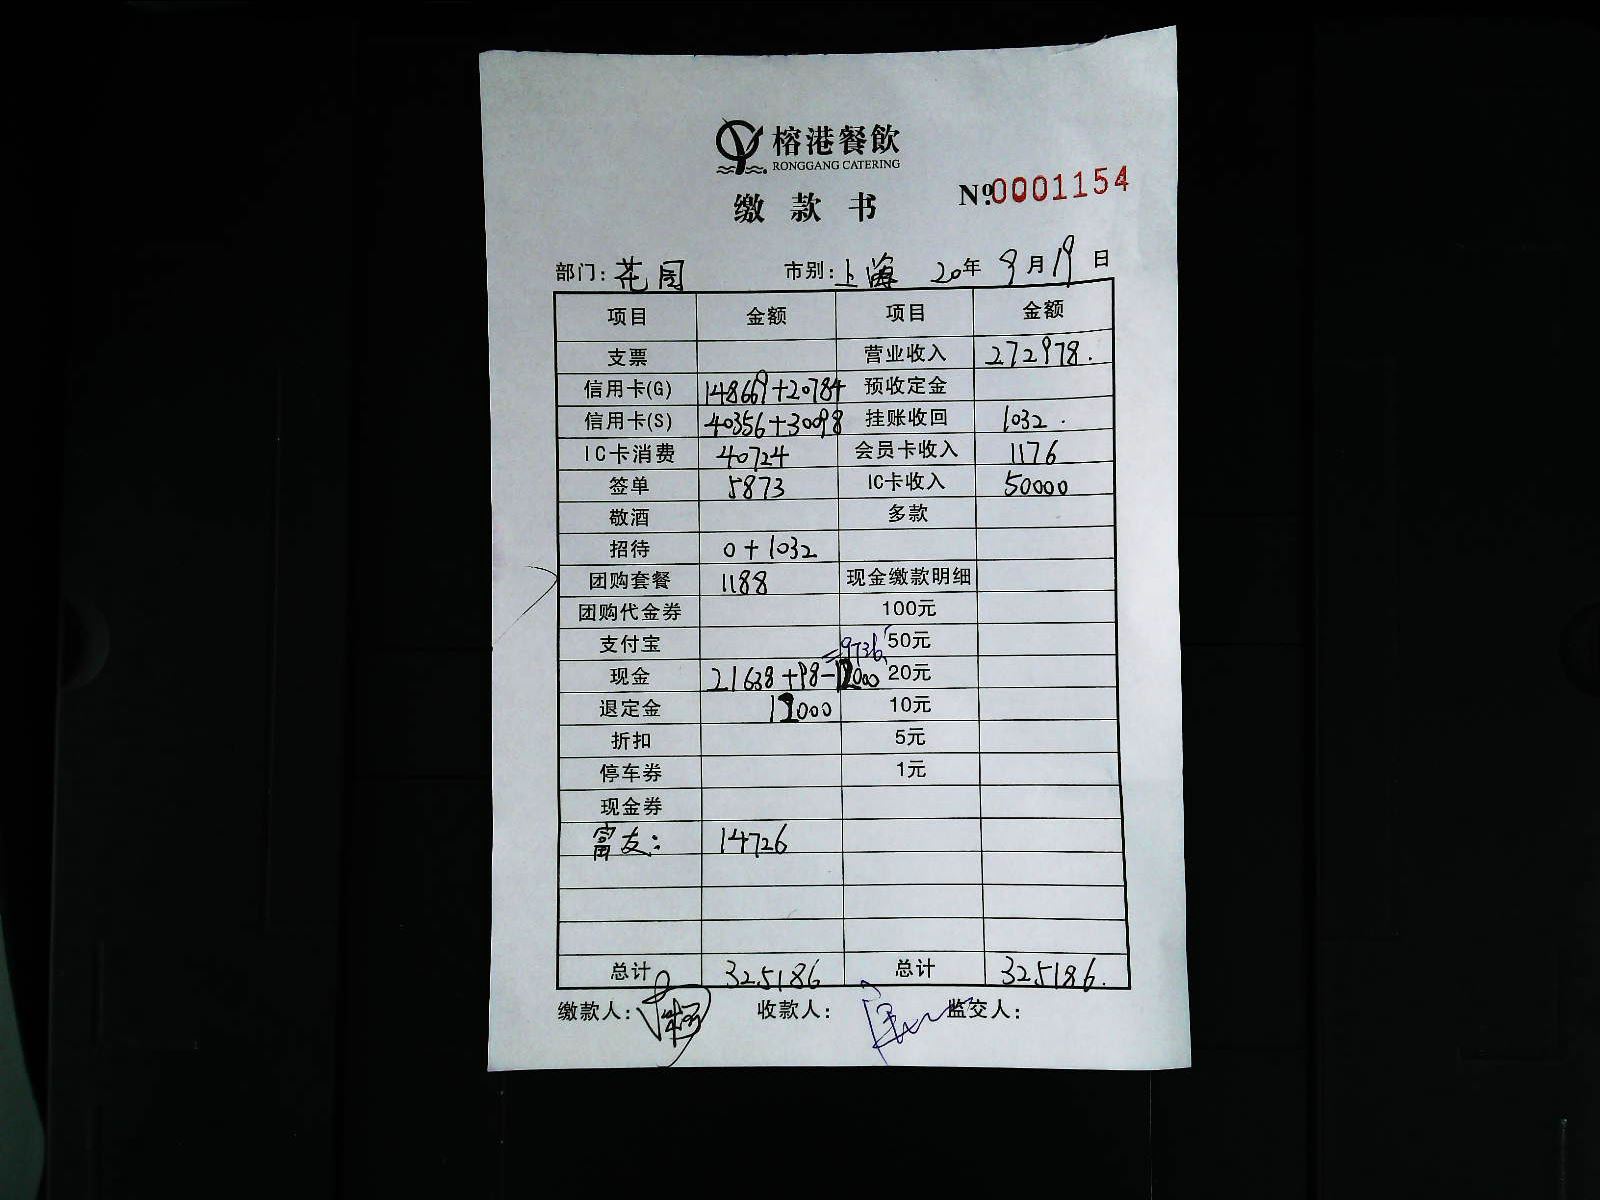 榕港餐飲
RONGGANG CATERING
缴款书
Nº0001154
部门:花园 市别:上海 20年 9月19日
项目 金额 项目 金额
支票 营业收入 272978.
信用卡(G) 148669+20784 预收定金
信用卡(S) 40356+30098 挂账收回 1032.
IC卡消费 40724 会员卡收入 1176
签单 5873 IC卡收入 50000
敬酒 多款
招待 0+1032
团购套餐 1188 现金缴款明细
团购代金券 100元
支付宝 =9736 50元
现金 21638+98-12000 20元
退定金 12000 10元
折扣 5元
停车券 1元
现金券
富友: 14726
总计 325186 总计 325186.
缴款人: 收款人: 监交人: